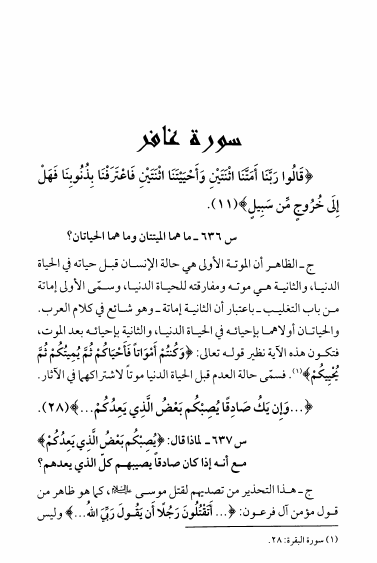 سورة غافر
﴿قَالُوا رَبَّنَا أَمَتَّنَا اثْنَتَيْنِ وَأَحْيَيْتَنَا اثْنَتَيْنِ فَاعْتَرَفْنَا بِذُنُوبِنَا فَهَلْ
إِلَى خُرُوجٍ مِّن سَبِيلٍ﴾ (١١).
س ٦٣٦ ـ ما هما الميتتان وما هما الحياتان؟
ج ـ الظاهر أن الموتة الأولى هي حالة الإنسان قبل حياته في الحياة
الدنيا، والثانية هي موته ومفارقته للحياة الدنيا، وسمّى الأولى إماتة
من باب التغليب ـ باعتبار أن الثانية إماتة ـ وهو شائع في كلام العرب.
والحياتان أولاهما بإحيائه في الحياة الدنيا، والثانية بإحيائه بعد الموت،
فتكون هذه الآية نظير قوله تعالى: ﴿وَكُنتُمْ أَمْوَاتاً فَأَحْيَاكُمْ ثُمَّ يُمِيتُكُمْ ثُمَّ
يُحْيِيكُمْ﴾(١). فسمّى حالة العدم قبل الحياة الدنيا موتاً لاشتراكهما في الآثار.
﴿...وَإِن يَكُ صَادِقًا يُصِبْكُم بَعْضُ الَّذِي يَعِدُكُمْ...﴾ (٢٨).
س ٦٣٧ ـ لماذا قال: ﴿يُصِبْكُم بَعْضُ الَّذِي يَعِدُكُمْ﴾
مع أنه إذا كان صادقاً يصيبهم كلّ الذي يعدهم؟
ج ـ هذا التحذير من تصديهم لقتل موسى عليه السلام، كما هو ظاهر من
قول مؤمن آل فرعون: ﴿... أَتَقْتُلُونَ رَجُلًا أَن يَقُولَ رَبِّيَ اللهُ...﴾ وليس
(١) سورة البقرة: ٢٨.